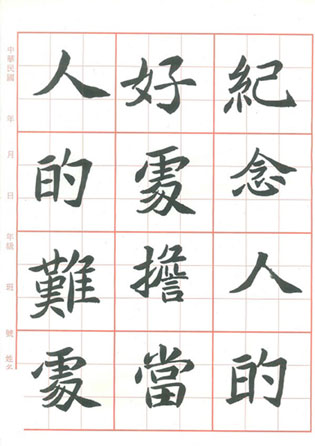 紀念人的
好處擔當
人的難處
中華民國 年 月 日 年級 班 號 姓名